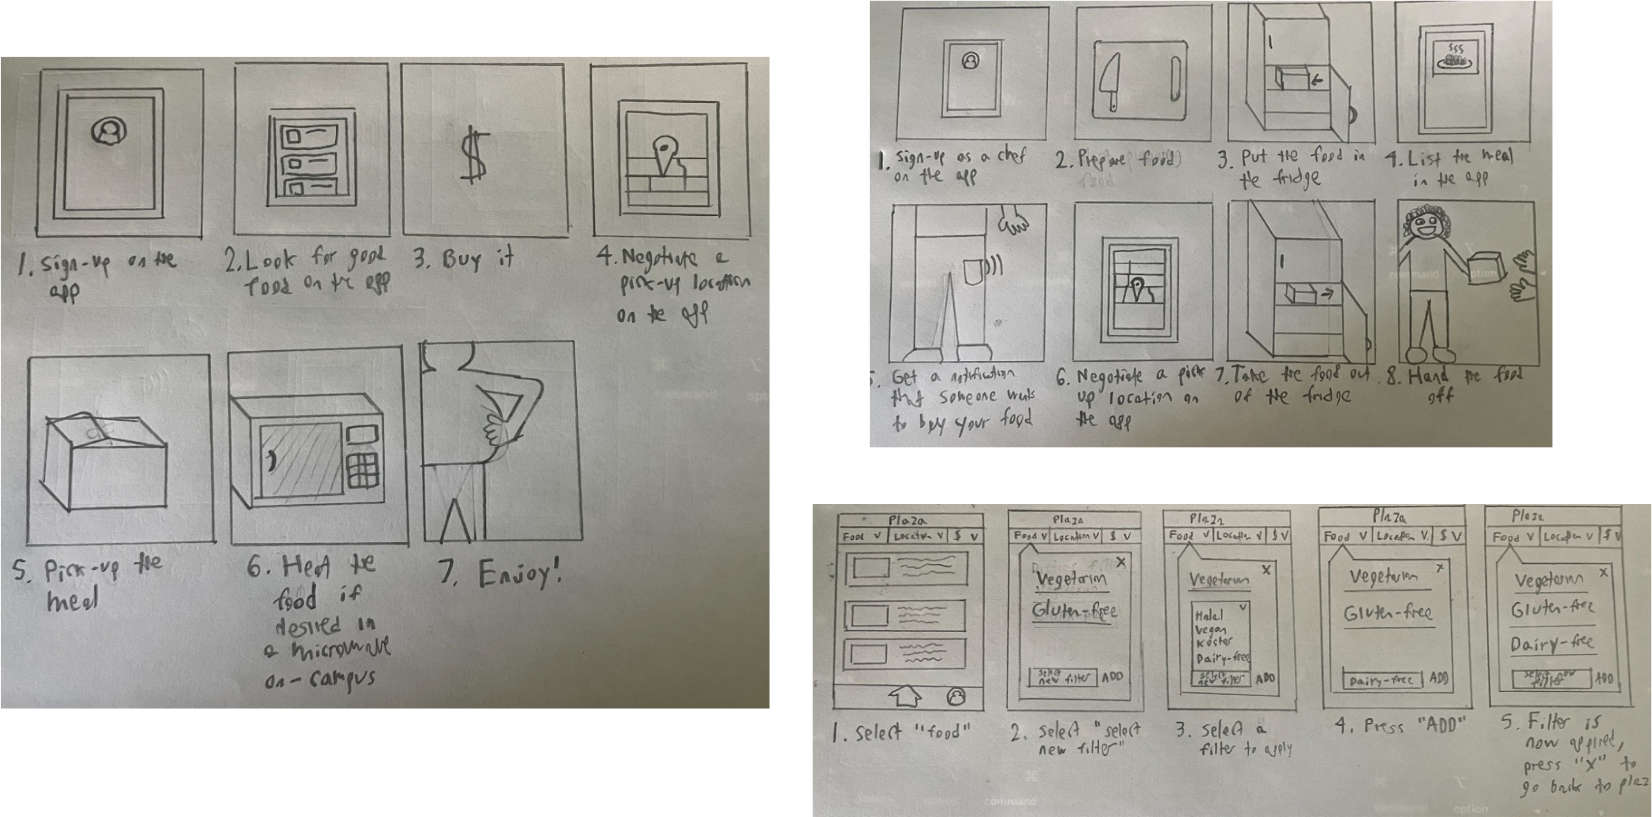 1. Sign-up on the
app
2. Look for good
food on the app
3. Buy it
4. Negotiate a
pick-up location
on the app
$
5. Pick-up the
meal
6. Heat the
food if
desired in
a microwave
on-campus
7. Enjoy!
1. Sign-up as a chef
on the app
2. Prepare food
3. Put the food in
the fridge
4. List the meal
in the app
5. Get a notification
that someone wants
to buy your food
6. Negotiate a pick
up location on
the app
7. Take the food out
of the fridge
8. Hand the food
off
option
command
Plaza
Food v Location v $ v
1. Select "food"
Plaza
Food v Location v $ v
x
Vegetarian
Gluten-free
select
new filter ADD
2. Select "select
new filter"
Plaza
Food v Location v $ v
x
Vegetarian
Halal v
Vegan
Kosher
Dairy-free
select
new filter ADD
3. Select a
filter to apply
Plaza
Food v Location v $ v
x
Vegetarian
Gluten-free
Dairy-free ADD
4. Press "ADD"
Plaza
Food v Location v $ v
x
Vegetarian
Gluten-free
Dairy-free
select new
filter ADD
5. Filter is
now applied,
press "X" to
go back to plaz
command
option